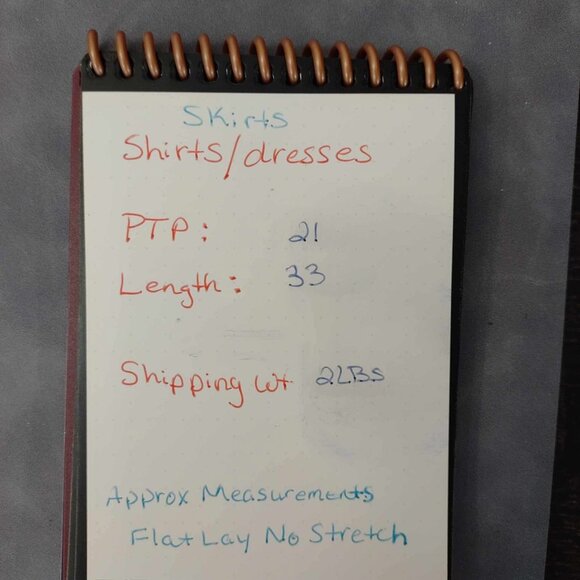 Skirts
Shirts/dresses
PTP: 21
Length: 33
Shipping Wt 2LBs
Approx Measurements
Flat Lay No Stretch